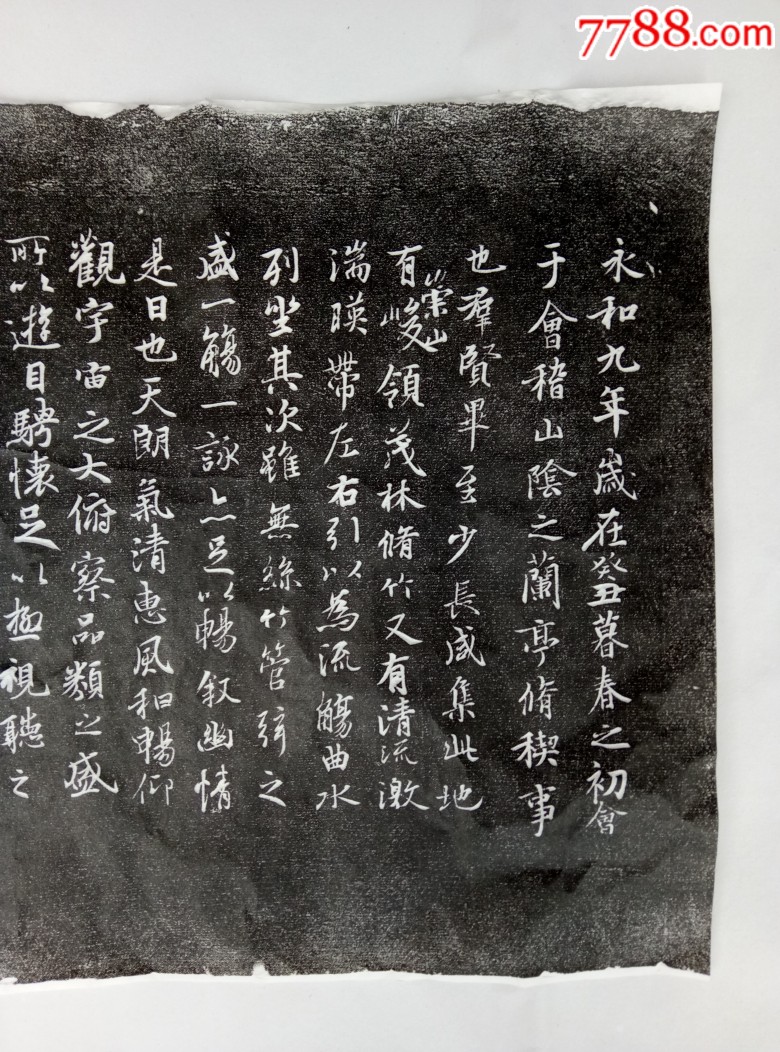 7788.com
永和九年歲在癸丑暮春之初會
于會稽山陰之蘭亭脩稧事
也羣賢畢至少長咸集此地
有崇山峻領茂林脩竹又有清流激
湍暎帶左右引以為流觴曲水
列坐其次雖無絲竹管弦之
盛一觴一詠亦足以暢敘幽情
是日也天朗氣清惠風和暢仰
觀宇宙之大俯察品類之盛
所以遊目騁懷足以極視聽之